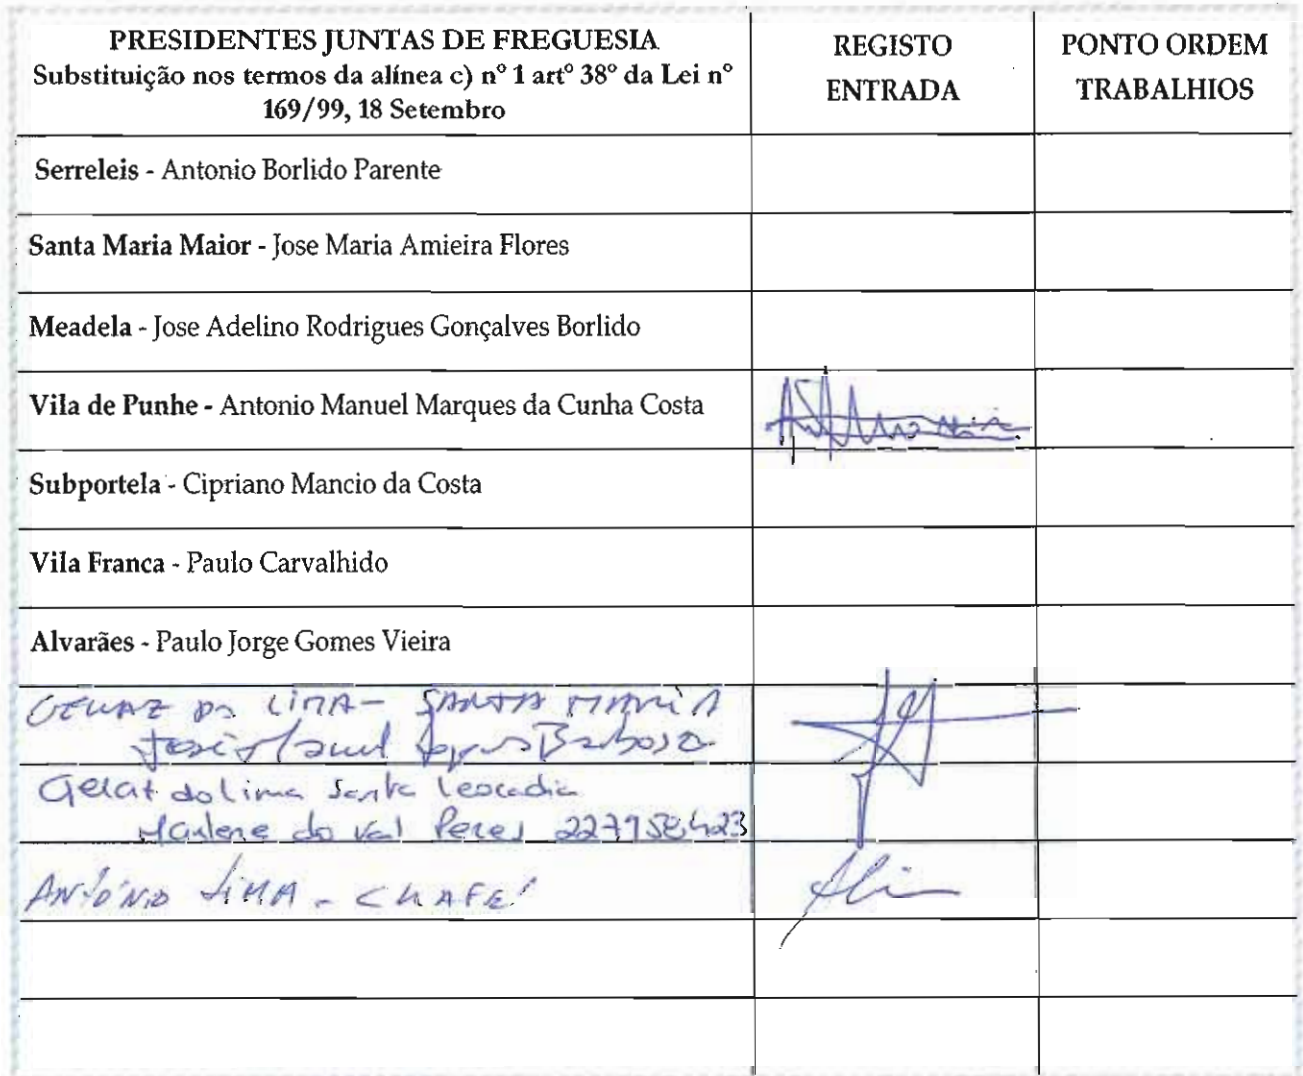 PRESIDENTES JUNTAS DE FREGUESIA
Substituição nos termos da alínea c) nº 1 artº 38º da Lei nº
169/99, 18 Setembro
REGISTO
ENTRADA
PONTO ORDEM
TRABALHIOS
Serreleis - Antonio Borlido Parente
Santa Maria Maior - Jose Maria Amieira Flores
Meadela - Jose Adelino Rodrigues Gonçalves Borlido
Vila de Punhe - Antonio Manuel Marques da Cunha Costa
Subportela - Cipriano Mancio da Costa
Vila Franca - Paulo Carvalhido
Alvarães - Paulo Jorge Gomes Vieira
LIMA - SANTA MARIA
Barbosa
do Lima Santa Leocadia
Marlene do Val Peres 227958423
ANTÓNIO LIMA - CHAFÉ